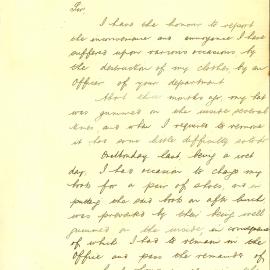 Sir,
I have the honour to report
the inconvenience and annoyance I have
suffered upon various occasions by
the destruction of my clothes by an
Officer of your department.
About three months ago, my hat
was gummed on the inside several
times and when I required to remove
it had some little difficulty
On Monday last, being a wet
day, I had occasion to change my
boots for a pair of shoes, and in
putting the said boots on after lunch
was prevented by their being well
gummed on the inside, in consequence
of which I had to remain in the
Office and pass the remarks of